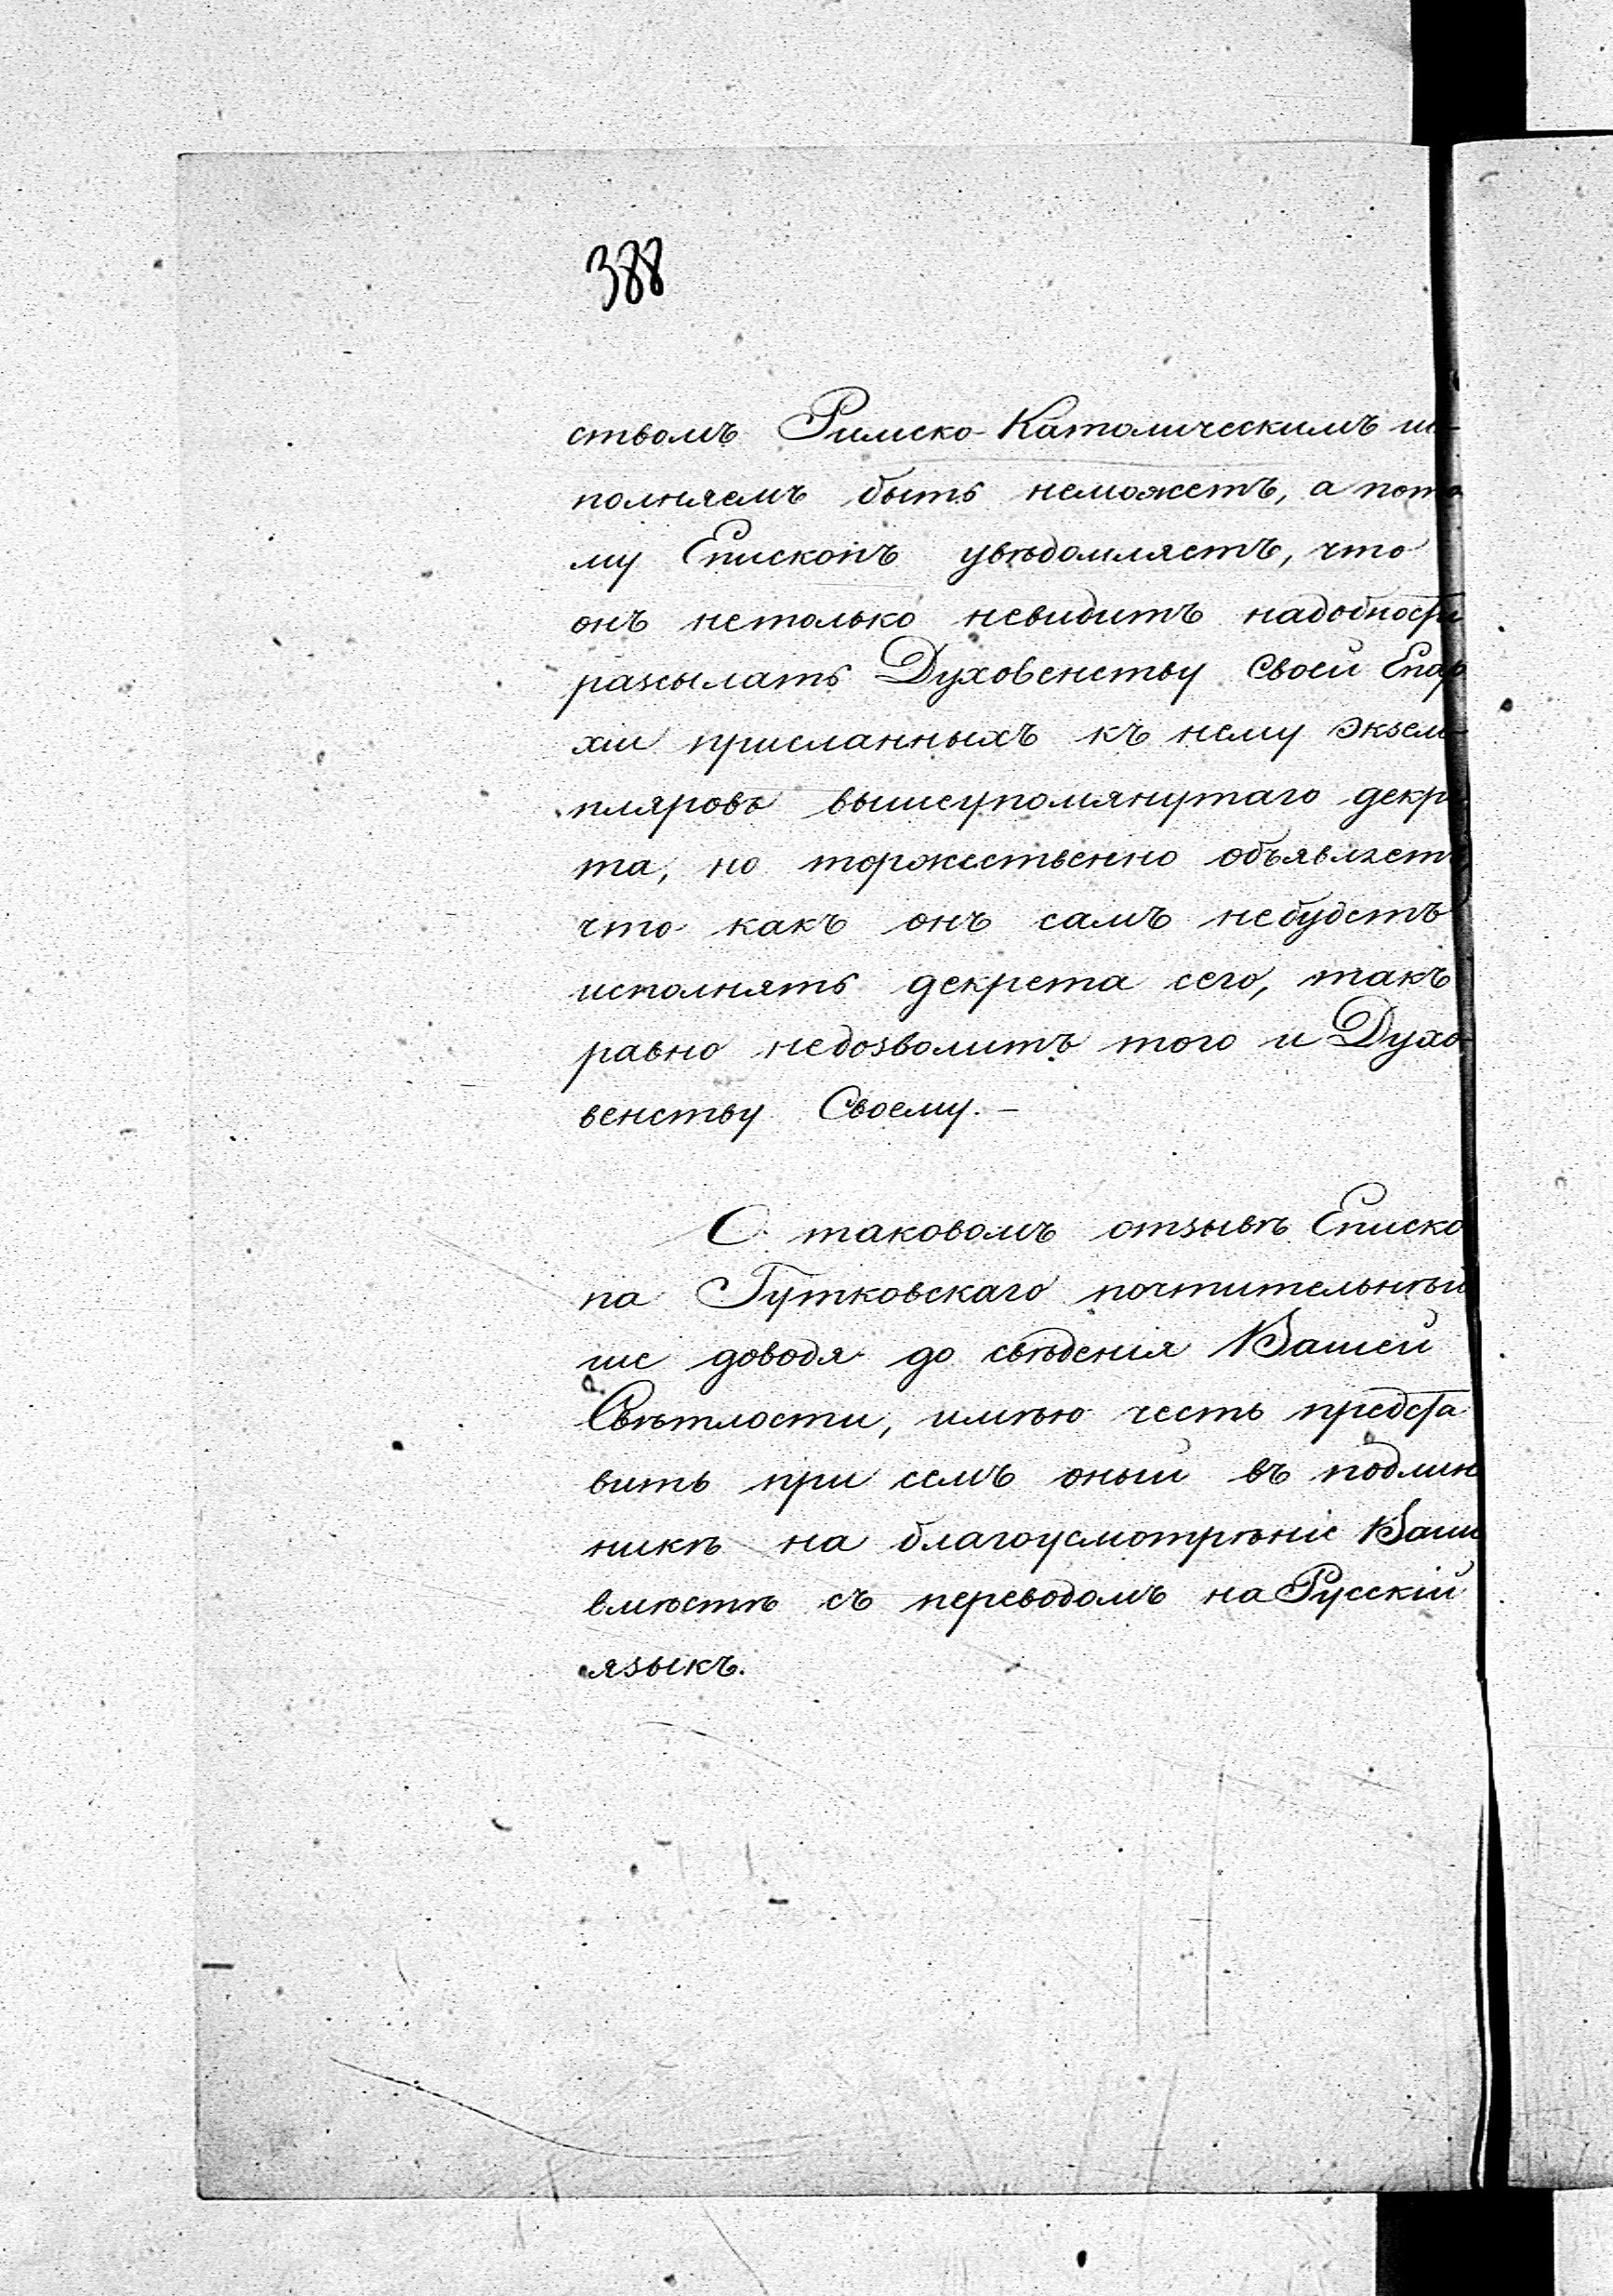 388
ствомъ Римско-Католическимъ ис-
полняемъ быть неможетъ, а пото
му Епископъ увѣдомляетъ, что
онъ нетолько невидитъ надобности
разсылать Духовенству Своей Епар
хіи присланныхъ къ нему Экзем-
пляровъ вышеупомянутаго декре
та, но торжественно объявляетъ
что какъ онъ самъ небудетъ
исполнять декрета сего, такъ
равно недозволитъ того и Духо-
венству Своему. —
О таковомъ отзывѣ Еписко
па Гутковскаго почтительнѣй
ше доводя до свѣденія Вашей
Свѣтлости, имѣю честь предста
вить при семъ оный въ подлин
никѣ на благоусмотрѣніе Ваше
вмѣстѣ съ переводомъ на Русскій
языкъ.